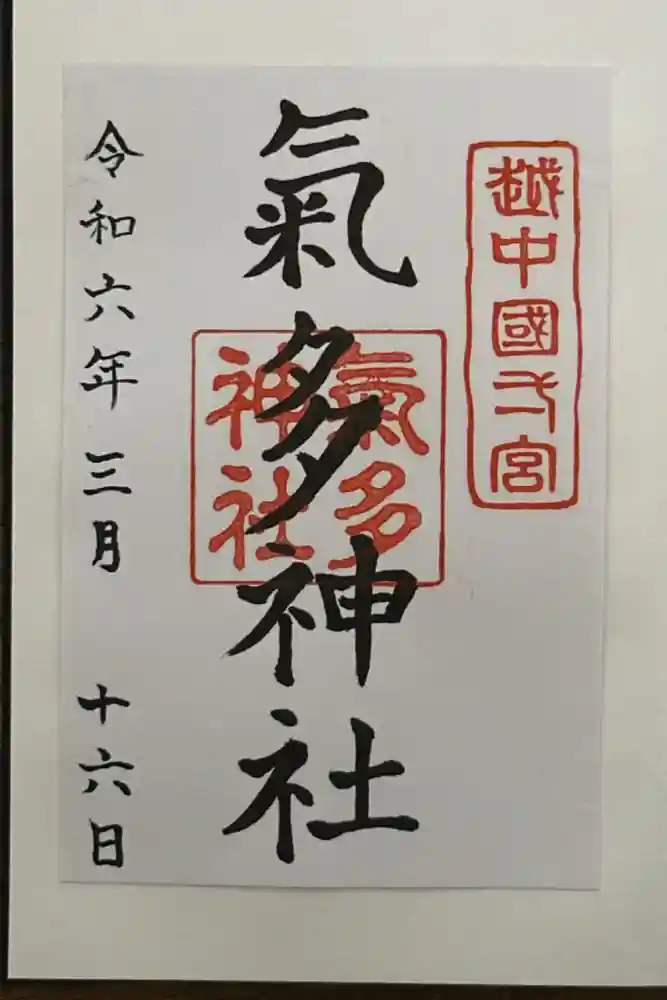 越中國一宮
氣多神社
氣多
神社
令和六年三月十六日